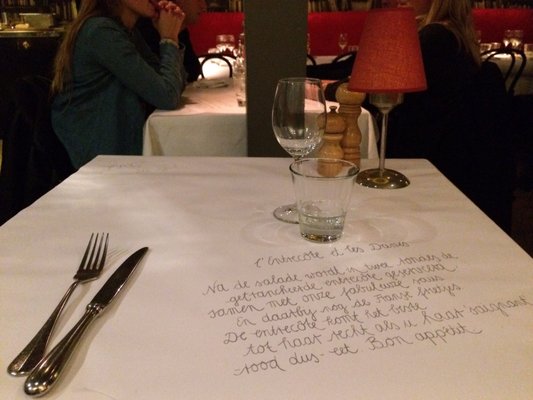 l'Entrecôte et les Dames
Na de salade wordt in twee rondes de
getrancheerde entrecote geserveerd
samen met onze fabuleuze saus
En daarbij nog de Franse frietjes
De entrecôte komt het beste
tot haar recht als u haar saignant
rood dus- eet. Bon appétit